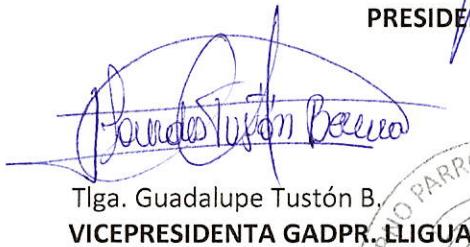 PRESIDE
Lourdes Tustón Barrera
Tlga. Guadalupe Tustón B.
VICEPRESIDENTA GADPR. LLIGUA
PARR